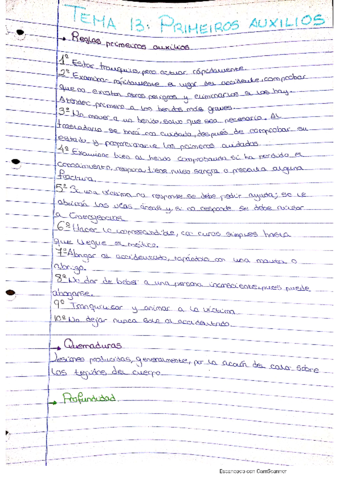 TEMA 13: PRIMEIROS AUXILIOS
→ Reglas primeiros auxilios
1º Estar tranquilo, pero actuar rápidamente
2º Examinar el lugar del accidente, comprobar
que no existan otros peligros y eliminarlos si los hay.
Atender primero a los heridos más graves
3º No mover a un herido salvo que sea necesario. Al
trasladarlo se hará con cuidado, después de comprobar su
estado y proporcionarle los primeros cuidados
4º Examinar bien al herido comprobando si ha perdido el
conocimiento, respira, tiene sangra o presenta alguna
fractura.
5º Si una víctima no responde se debe pedir ayuda, se le
abrirán las vías aéreas y si no responde se debe
a
6º Hacer lo imprescindible, con curas simples hasta
que llegue el médico.
7º Abrigar al accidentado, tapándolo con una manta o
abrigo.
8º No dar de beber a una persona inconsciente, pues puede
ahogarse.
9º Tranquilizar y animar a la víctima
10º No dejar nunca solo al accidentado
→ Quemaduras
Lesiones producidas, generalmente, por la acción del calor sobre
los tejidos del cuerpo
→ Profundidad
Escaneado con CamScanner